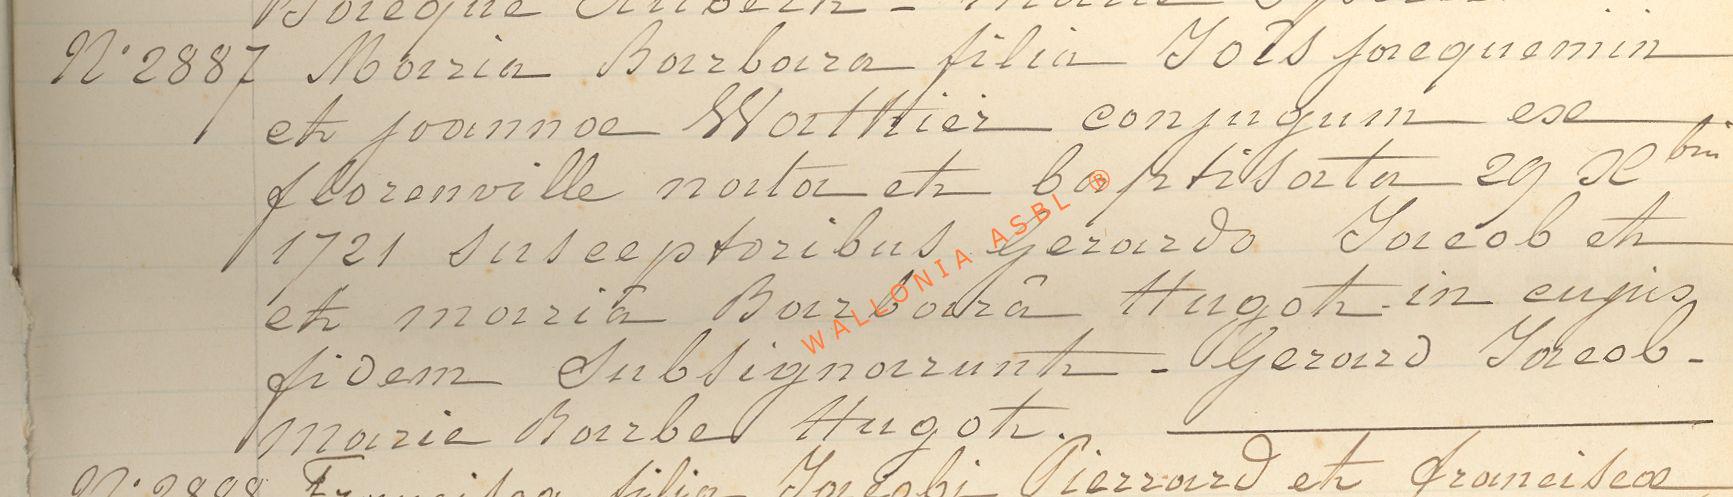 N° 2887 Maria Barbara filia Jois jacquemin
et joannae Watthier conjugum ex
florenville nata et baptisata 29 Xbris
1721 susceptoribus Gerardo Jacob et
et mariâ Barbarâ Hugot in cujus
fidem subsignarunt - Gerard Jacob -
marie Barbe Hugot.
N° 2888 Francisca filia Jacobi Pierrard et franciscae
WALLONIA ASBL ®